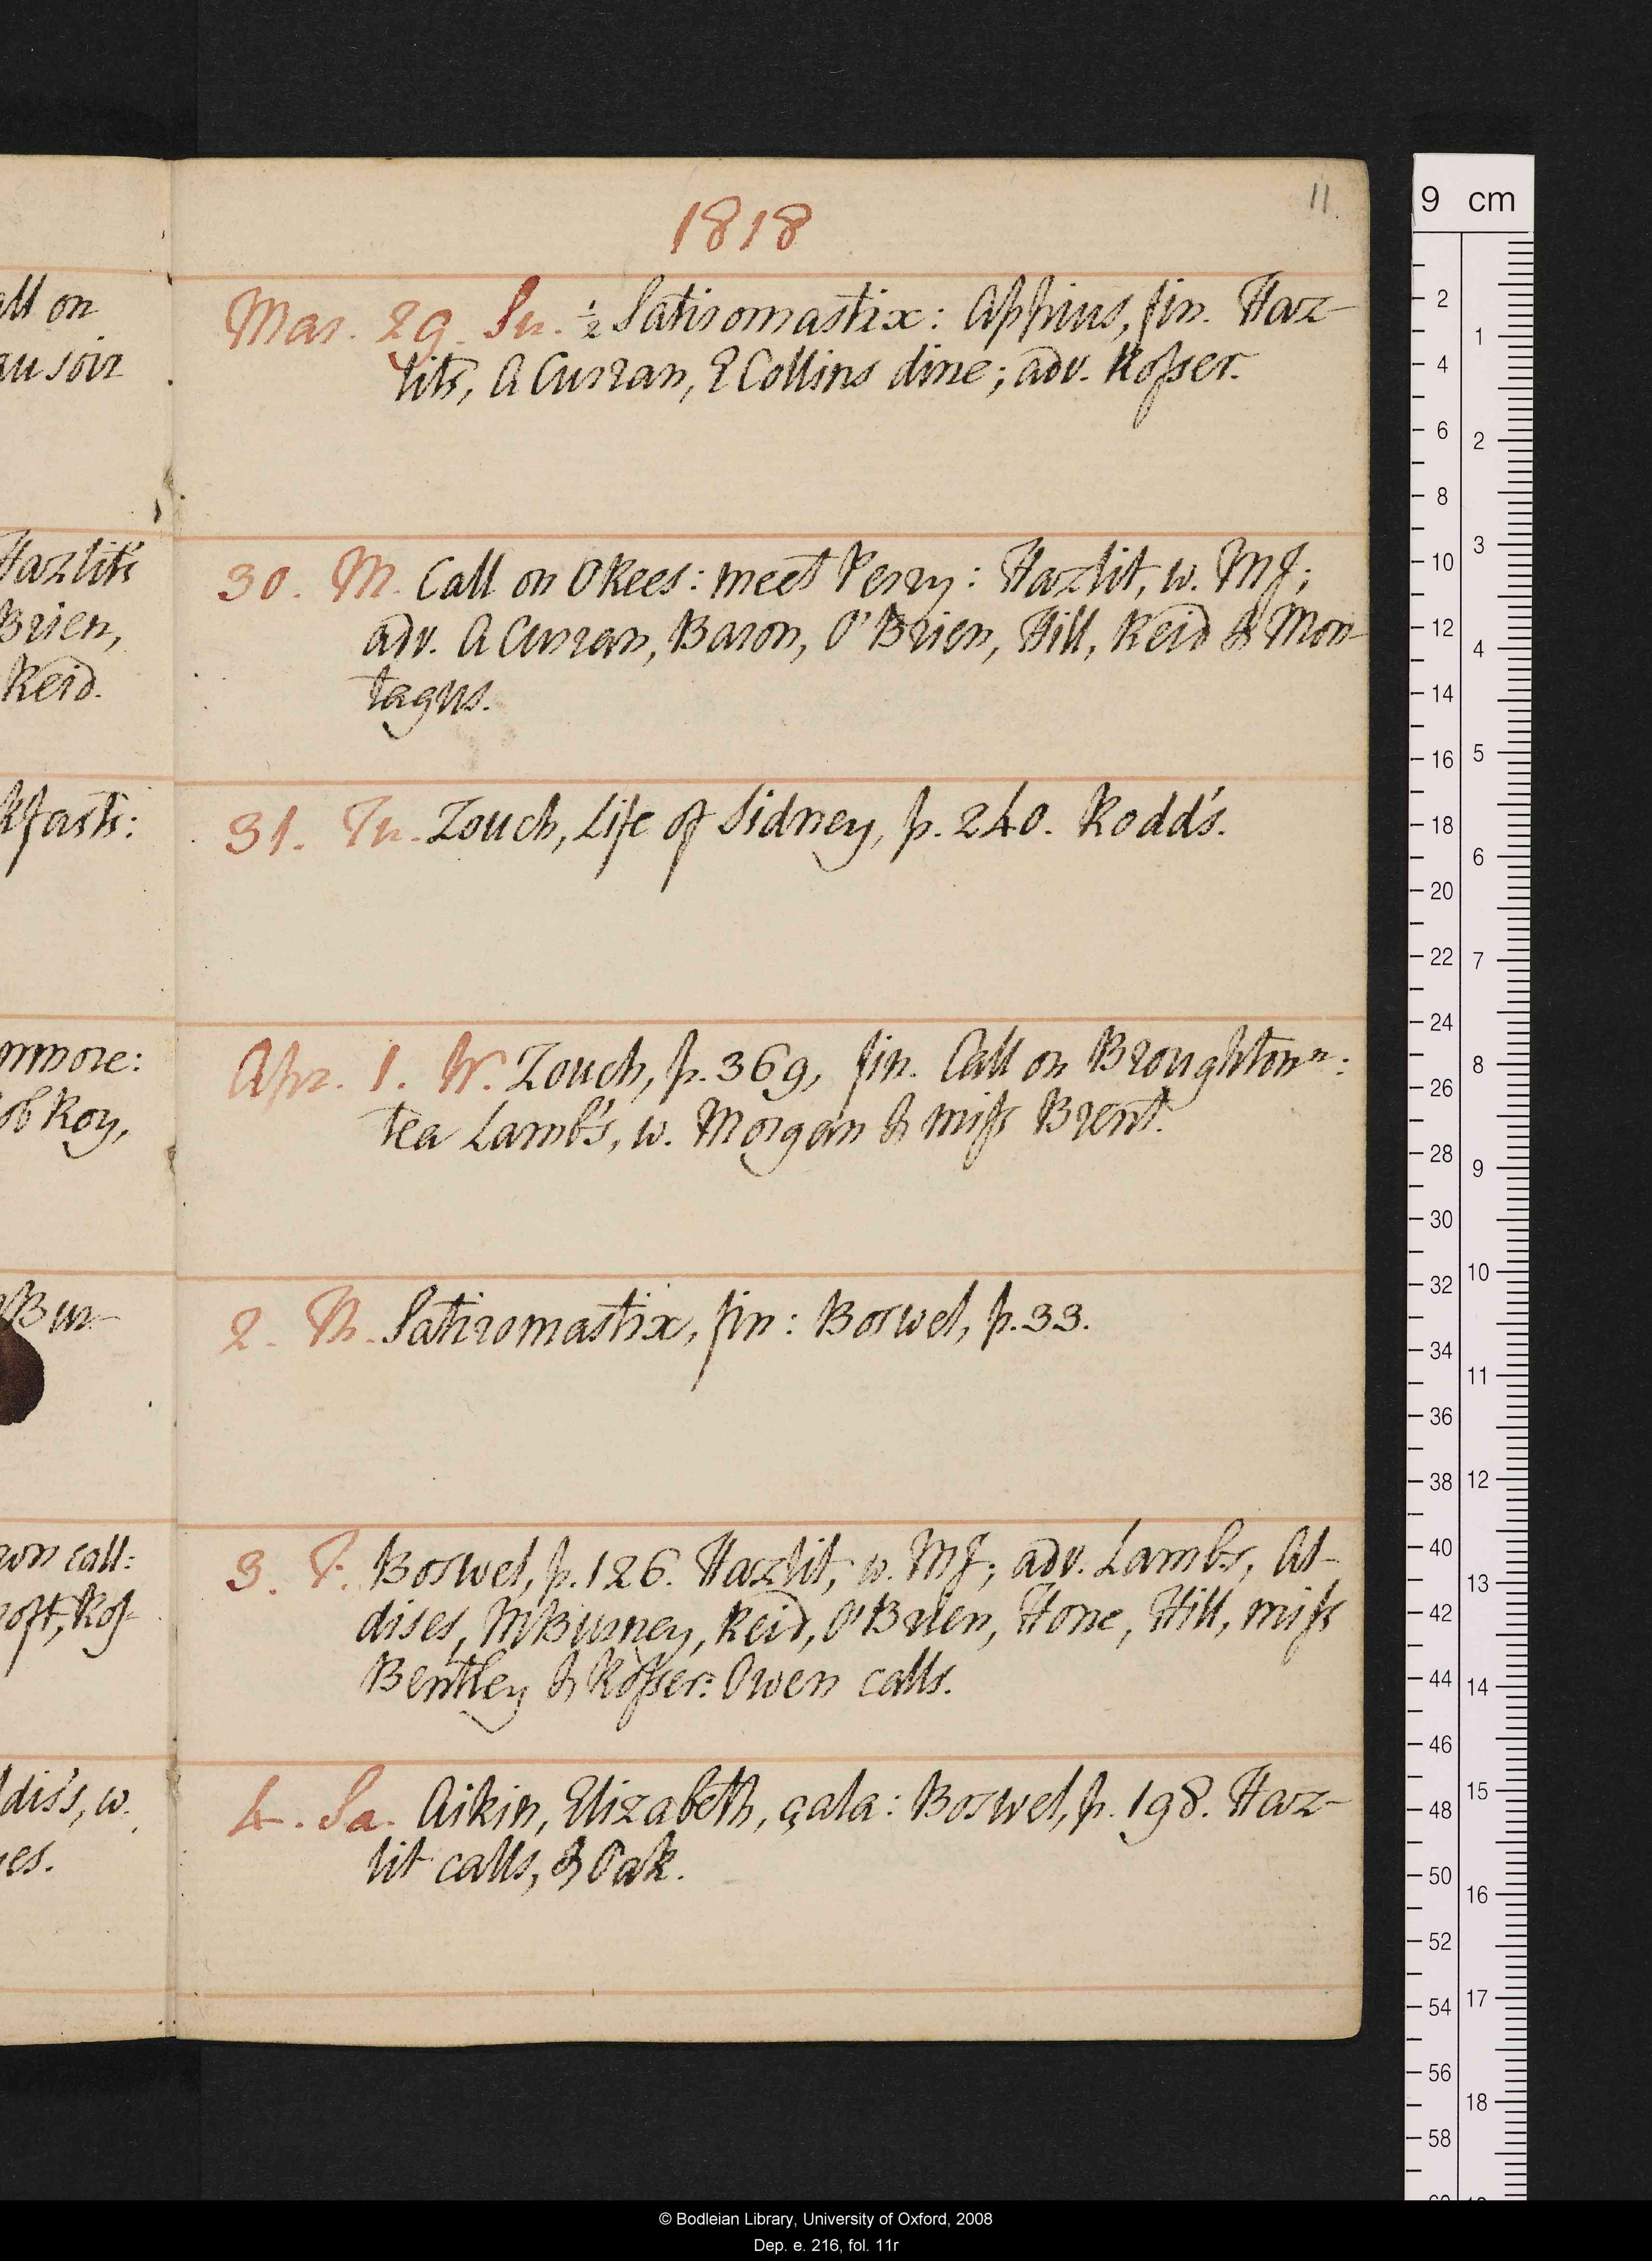 11.
1818
all on
au soir
Mar. 29. Su. ½ Satiromastix: Appius, fin. Haz-
lits, A Curran, E Collins dine; adv. Rosser.
Hazlits
Brien,
Reid.
30. M. Call on OKees: meet Perry: Hazlit, w. MJ;
adv. A Curran, Baron, O'Brien, Hill, Reid & Mon-
tagus.
kfasts:
31. Tu. Zouch, Life of Sidney, p. 240. Rodd's.
nmore:
ob Roy,
Apr. 1. W. Zouch, p. 369, fin. Call on Broughton n:
tea Lamb's, w. Morgan & miss Brent.
Bur-
2. Th. Satiromastix, fin: Boswel, p. 33.
wn call:
oft, Ros-
3. F. Boswel, p. 126. Hazlit, w. MJ; adv. Lambs, Al-
dises, MBurney, Reid, O'Brien, Hone, Hill, miss
Bentley & Rosser: Owen calls.
dis's, w.
es.
4. Sa. Aikin, Elizabeth, çala: Boswel, p. 198. Haz-
lit calls, & Oak.
9 cm
2 4 6 8 10 12 14 16 18 20 22 24 26 28 30 32 34 36 38 40 42 44 46 48 50 52 54 56 58
1 2 3 4 5 6 7 8 9 10 11 12 13 14 15 16 17 18
© Bodleian Library, University of Oxford, 2008
Dep. e. 216, fol. 11r